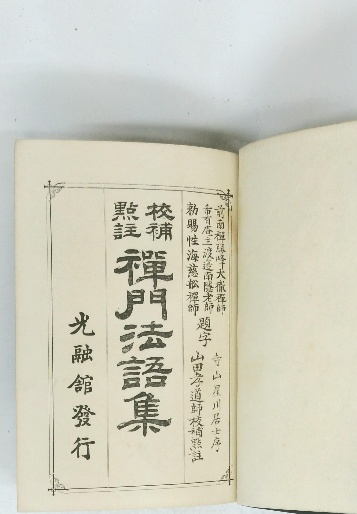 前南禪勝峰大徹禪師
希有庵主渡邊南隱老師
勅賜性海慈舩禪師
題字
寺山星川居士序
山田孝道師校補點註
校補
點註
禪門法語集
光融舘發行